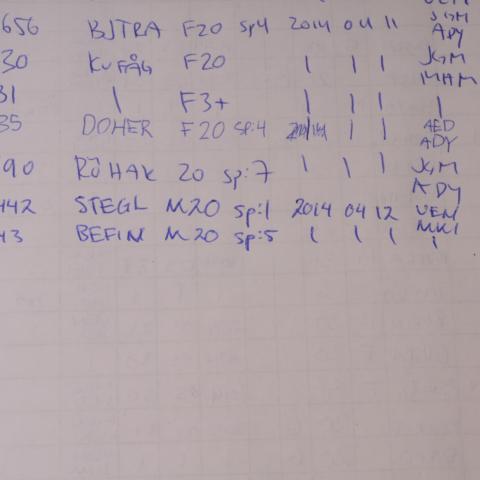 656 BJTRA F20 Sp4 2014 04 11 JGM
ADY
30 KUFÅG F20 | | | JGM
MAM
31 | F3+ | | | |
35 DOHER F20 SP:4 | | AED
ADY
90 RÖHAK 20 Sp:7 | | | JGM
ADY
442 STEGL M20 Sp:1 2014 04 12 UEM
MKI
43 BEFIN M20 Sp:5 | | | |